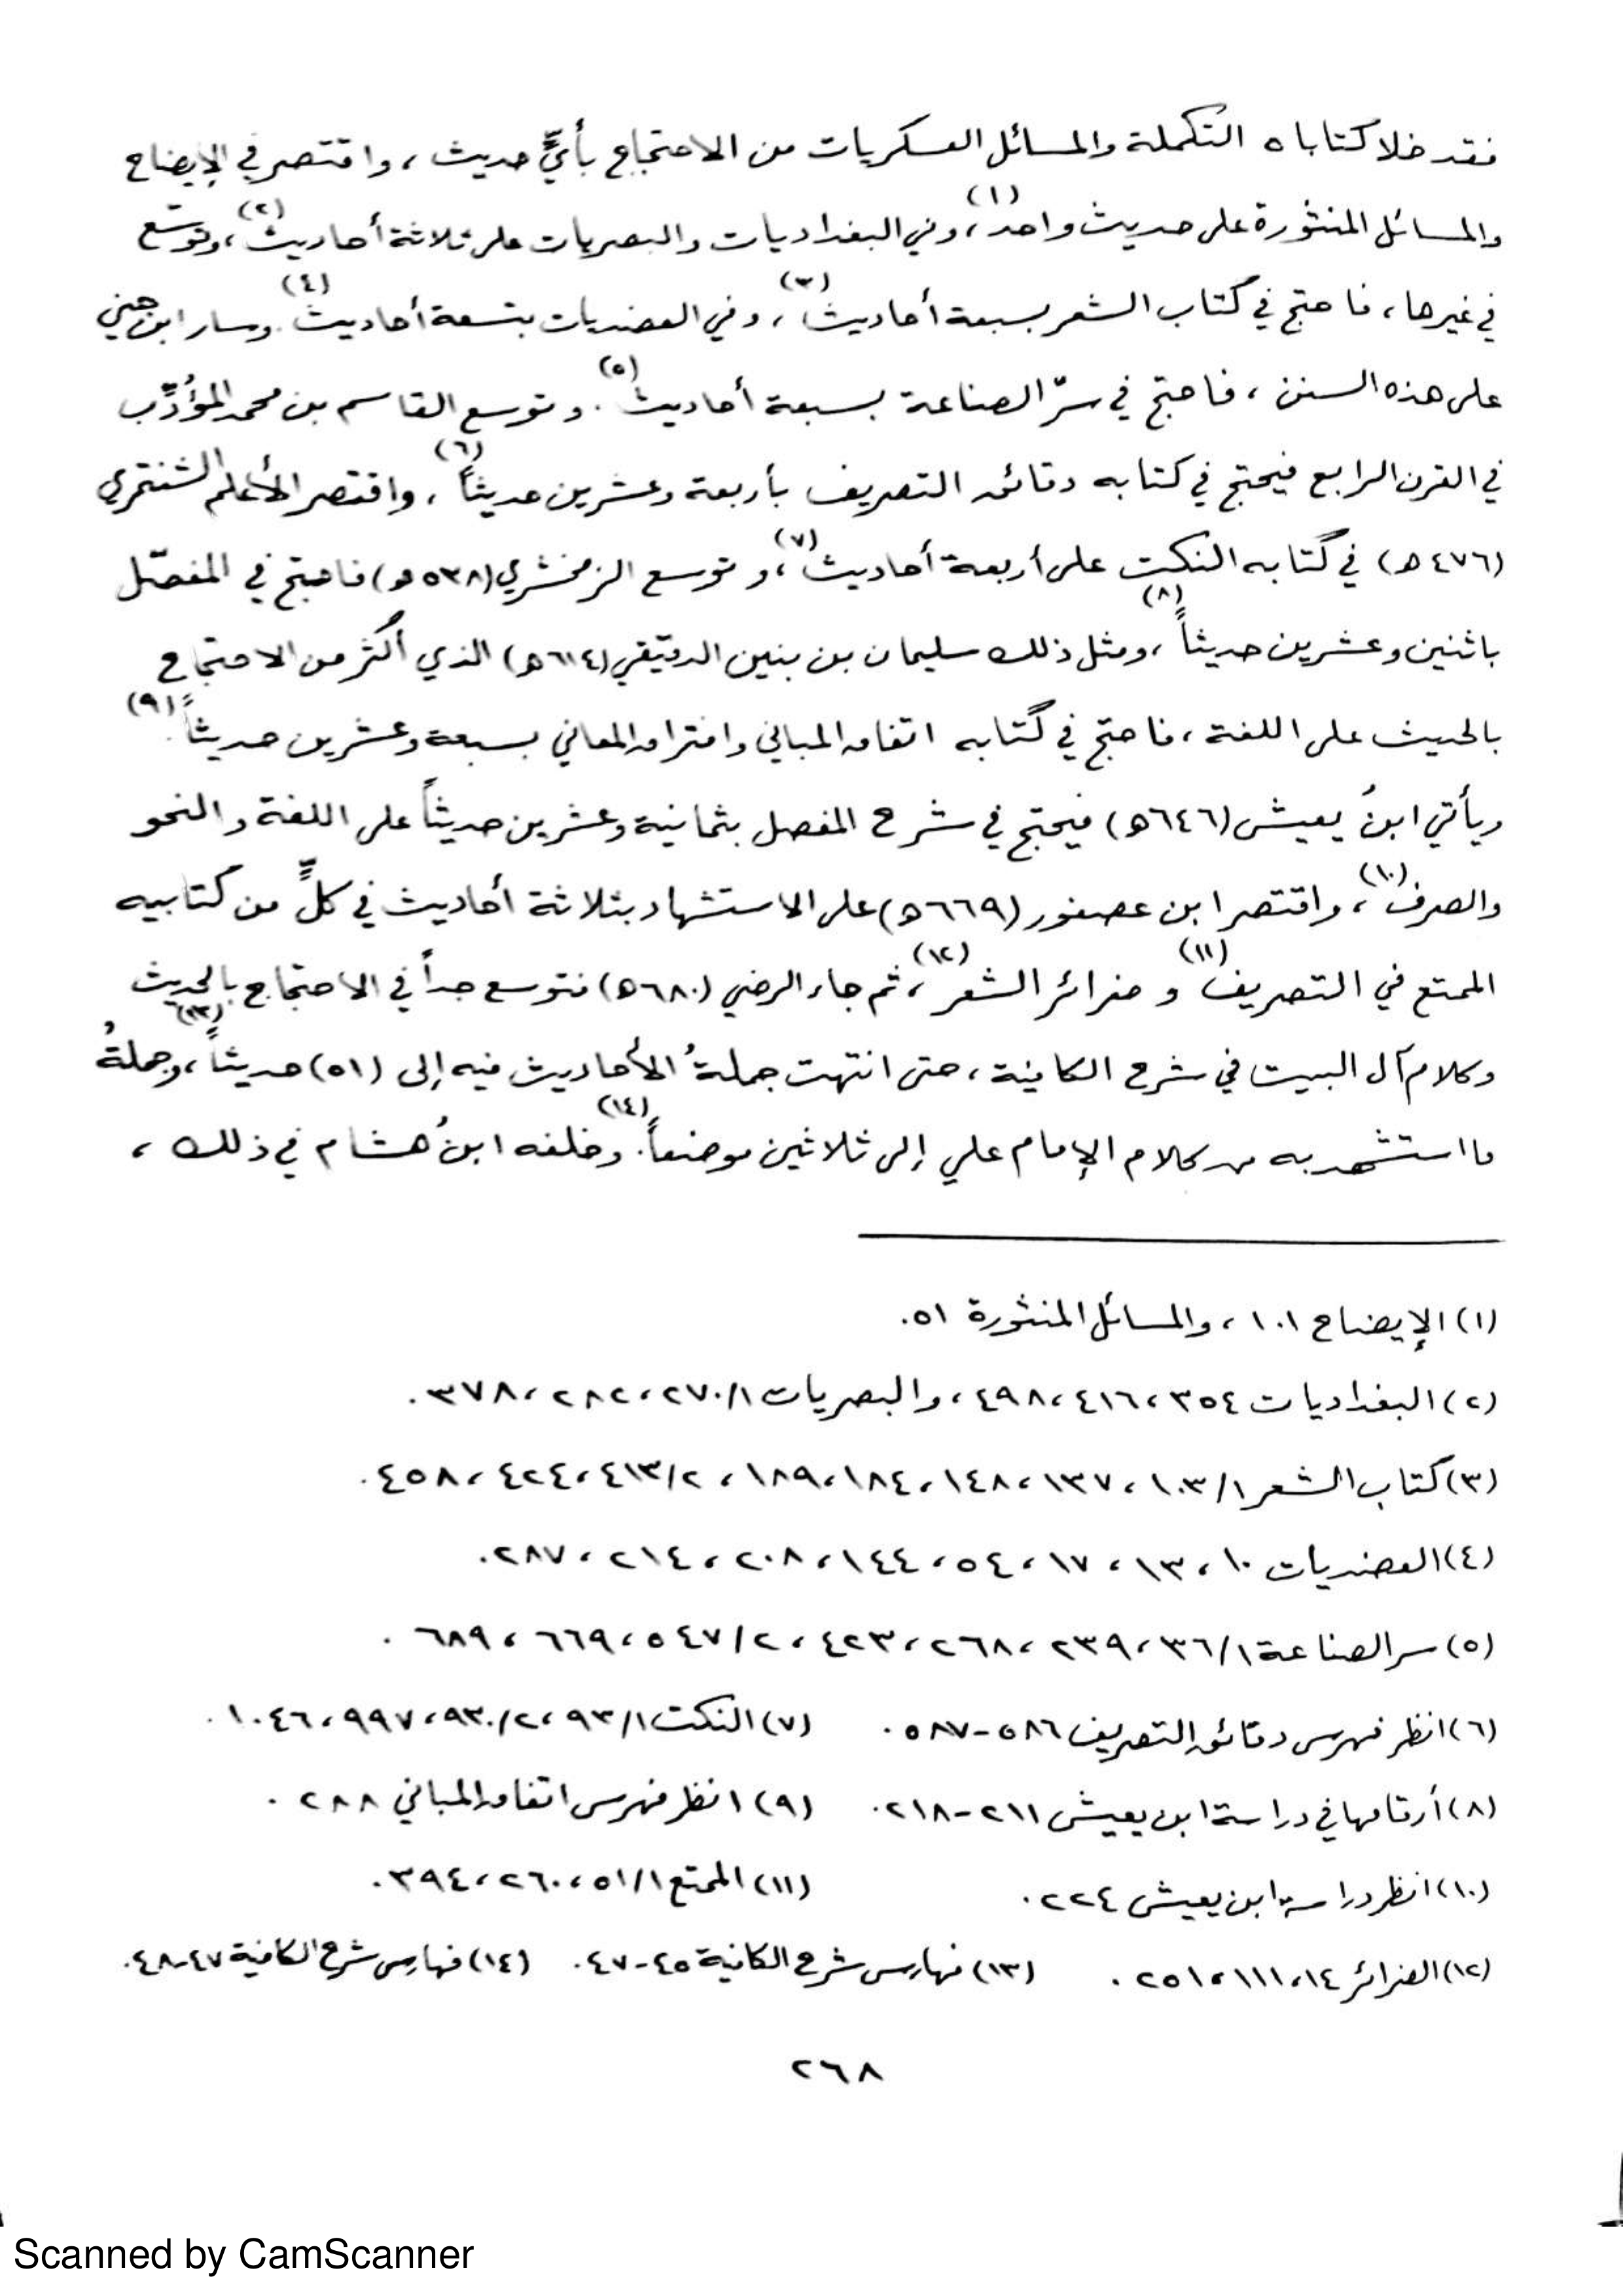 فقد خلا كتاباه التكملة والمسائل العسكريات من الاحتجاج بأيِّ حديث ، واقتصر في الإيضاح
والمسائل المنثورة على حديث واحد(١)، وفي البغداديات والبصريات على ثلاثة أحاديث(٢)، وتوسّع
في غيرها، فاحتج في كتاب الشعر بسبعة أحاديث(٣)، وفي العضديات بتسعة أحاديث(٤). وسار ابن جني
على هذه السنن ، فاحتج في سرّ الصناعة بسبعة أحاديث(٥). وتوسع القاسم بن محمد المؤدِّب
في القرن الرابع فيحتج في كتابه دقائق التصريف بأربعة وعشرين حديثاً(٦)، واقتصر الأعلم الشنتمري
(٤٧٦ه) في كتابه النكت على أربعة أحاديث(٧)، وتوسع الزمخشري (٥٣٨ه) فاحتج في المفصّل
باثنين وعشرين حديثاً(٨)، ومثل ذلك سليمان بن بنين الدقيقي (٦١٤ه) الذي أكثر من الاحتجاج
بالحديث على اللغة ، فاحتج في كتابه اتفاق المباني وافتراق المعاني بسبعة وعشرين حديثاً(٩).
ويأتي ابنُ يعيش (٦٤٦ه) فيحتج في شرح المفصل بثمانية وعشرين حديثاً على اللغة والنحو
والصرف(١٠)، واقتصر ابن عصفور (٦٦٩ه) على الاستشهاد بثلاثة أحاديث في كلٍّ من كتابيه
الممتع في التصريف(١١) و ضرائر الشعر(١٢)، ثم جاء الرضي (٦٨٠ه) فتوسع جداً في الاحتجاج بالحديث
وكلام آل البيت في شرح الكافية ، حتى انتهت جملةُ الأحاديث فيه إلى (٥١) حديثاً(١٣)، وجملةُ
ما استشهد به من كلام الإمام علي إلى ثلاثين موضعاً(١٤). وخلفه ابنُ هشام في ذلك ،
(١) الإيضاح ١٠١ ، والمسائل المنثورة ٥١.
(٢) البغداديات ٣٥٤، ٤١٦، ٤٩٨، والبصريات ٢٧٠/١، ٢٨٢، ٣٧٨.
(٣) كتاب الشعر ١٠٣/١، ١٣٧، ١٤٨، ١٨٤، ١٨٩، ٤١٣/٢، ٤٢٤، ٤٥٨.
(٤) العضديات ١٠، ١٣، ١٧، ٥٤، ١٤٤، ٢٠٨، ٢١٤، ٢٨٧.
(٥) سر الصناعة ٣٦/١، ٢٣٩، ٢٦٨، ٤٢٣، ٥٤٧/٢، ٦٦٩، ٦٨٩.
(٦) انظر فهرس دقائق التصريف ٥٨٦-٥٨٧. (٧) النكت ٩٣/١، ٩٣٠/٢، ٩٩٧، ١٠٤٦.
(٨) أرقامها في دراسة ابن يعيش ٢١١-٢١٨. (٩) انظر فهرس اتفاق المباني ٢٨٨.
(١٠) انظر دراسة ابن يعيش ٢٢٤. (١١) الممتع ٥١/١، ٢٦٠، ٣٩٤.
(١٢) الضرائر ١٤، ١١١، ٢٥١. (١٣) فهارس شرح الكافية ٤٥-٤٧. (١٤) فهارس شرح الكافية ٤٧-٤٨.
٢٦٨
Scanned by CamScanner